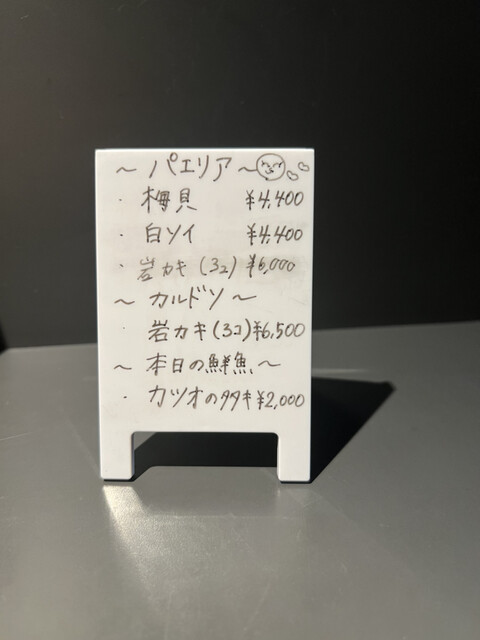 ～ パエリア ～
・ 梅貝 ¥4,400
・ 白ソイ ¥4,400
・ 岩カキ (3コ) ¥6,000
～ カルドソ ～
・ 岩カキ (3コ) ¥6,500
～ 本日の鮮魚 ～
・ カツオのタタキ ¥2,000